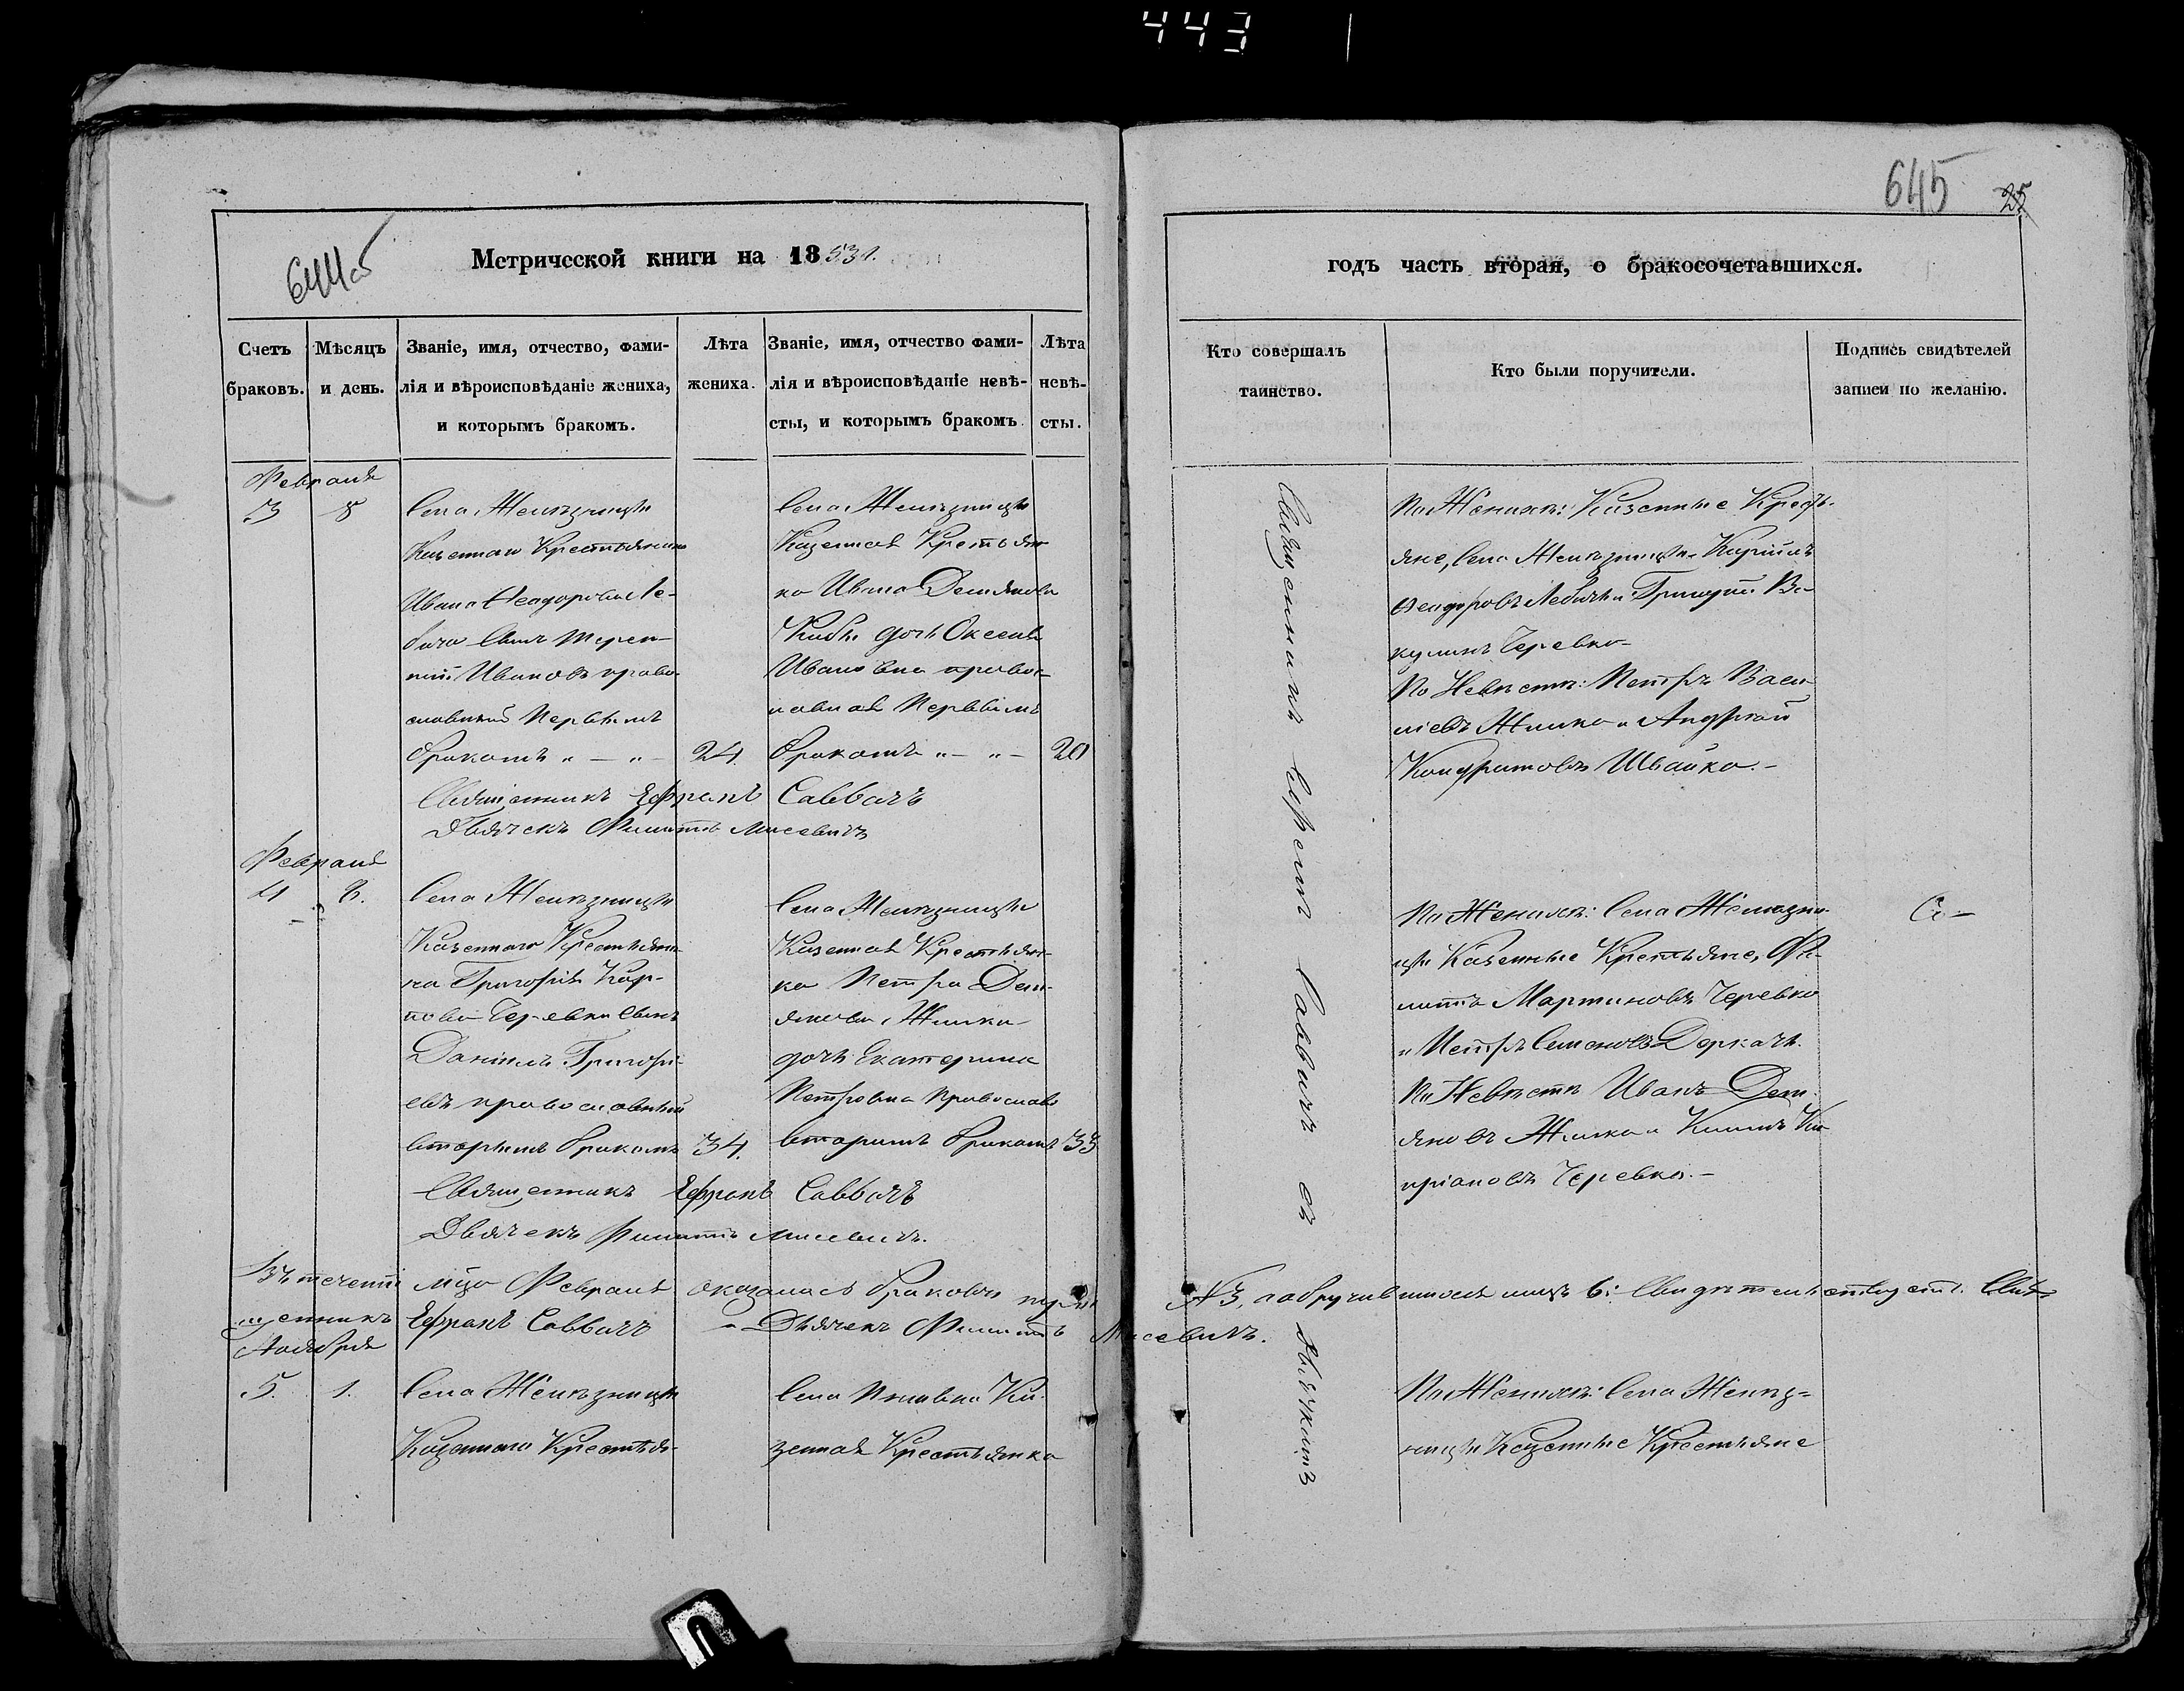 443
645
25
644об
Метрической книги на 1853 г.
годъ часть вторая, о бракосочетавшихся.
Счетъ браковъ.
Мѣсяцъ и день.
Званіе, имя, отчество, фами-
лія и вѣроисповѣданіе жениха,
и которымъ бракомъ.
Лѣта
жениха.
Званіе, имя, отчество фами-
лія и вѣроисповѣданіе невѣ-
сты, и которымъ бракомъ
Лѣта
невѣ-
сты.
Кто совершалъ
таинство.
Кто были поручители.
Подпись свидѣтелей
записи по желанію.
Февраля
3 8
Села Желѣзницы
Казеннаго Крестьянина
Ивана Феодорова Ле-
бича Сынъ Терен-
тій Ивановъ право-
славный Первымъ
бракомъ " — " —
24.
Села Желѣзницы
Казенная Крестьян
ка Ивана Демянова
дочь Оксенія
Ивановна правос-
лавная Первымъ
бракомъ " — " —
20
Священникъ Савичъ
Дьячекъ Филиппъ Мисевичъ
По Женихѣ: Казенные Кресть-
яне, Села Желѣзницы Кирилъ
Феодоровъ Лебичъ и Григорій Ва-
кулинъ Черевко
По Невѣстѣ: Петръ Васи-
ліевъ Жилка и Андрей
Кондратовъ Швайко. -
Священникъ Савичъ съ Дьячкомъ
Февраля
4 8.
Села Желѣзницы
Казеннаго Крестьяни-
на Григорія Кар-
пова Черевки Сынъ
Даніилъ Григорі-
евъ православный
вторымъ бракомъ
34.
Села Желѣзницы
Казенная Крестьян-
ка Петра Дем-
янова Жилки
дочь Екатерина
Петровна Православ
вторымъ бракомъ
33
Священникъ Савичъ
Дьячекъ Филиппъ Мисевичъ.
По Женихѣ: Села Желѣзни-
цы Казенные Крестьяне, Фи-
липпъ Мартиновъ Черевко
и Петръ Семеновъ Деркачъ.
По Невѣстѣ Иванъ Дем-
яновъ Жилка и Климъ Ки-
пріановъ Черевка. -
Въ теченіи мца Февраля оказалось браковъ №3, поручившихся лицъ 6: Свидѣтельствуетъ Свя-
щенникъ Савичъ - Дьячекъ Филиппъ Мисевичъ.
Ноября
5. 1.
Села Желѣзницы
Казеннаго Крестья-
Села Ка-
зенная Крестьянка
По Женихѣ: Села Желѣз-
ницы Казенные Крестьяне